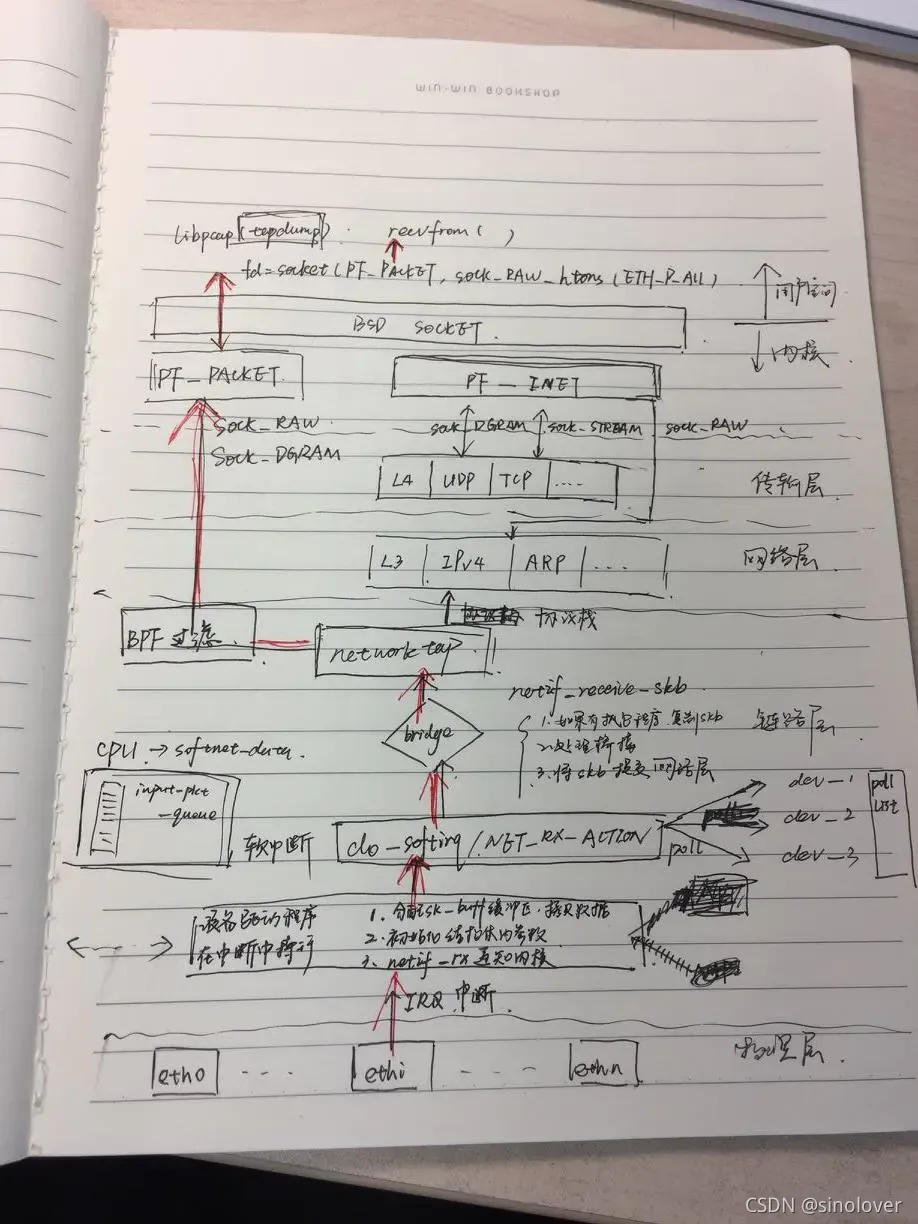 WIN-WIN BOOKSHOP
libpcap (tcpdump) . recvfrom ( )
fd = socket (PF_PACKET, sock_RAW_htons (ETH_P_All)
用户空间
BSD SOCKET.
内核
PF-PACKET.
PF - INET
Sock_RAW.
Sock_DGRAM
sock DGRAM
sock_STREAM
sock_RAW
L4 UDP TCP ....
传输层
L3 IPv4 ARP ...
网络层
协议栈
BPF 过滤.
network tap
netif_receive-skb
1. 如果有抓包程序,复制skb
2.处理桥接
3.将skb提交网络层
链路层
bridge
CPU → softnet-data.
input-pkt
-queue
软中断
do_softirq / NET_RX_ACTION
poll
dev-1
dev-2
dev-3
poll
list
设备驱动程序
在中断中执行
1. 分配sk_buff缓冲区,拷贝数据
2.初始化结构体内参数
3. netif_rx通知内核
IRQ 中断
eth0 ... ethi ... ethn
物理层.
CSDN @sinolover